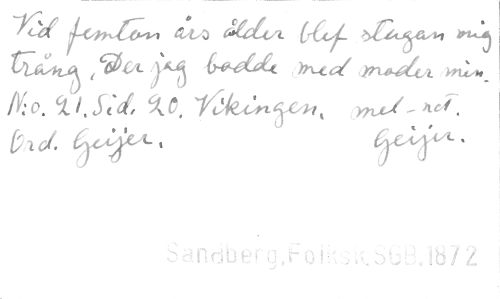 Vid femton års ålder blef stugan mig
trång, Der jag bodde med moder min.
N:o. 21. Sid. 20. Vikingen. mel-not.
Ord. Geijer. Geijer.
Sandberg, Folksk. SGB. 1872